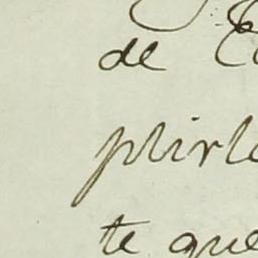 de
plirle
te que